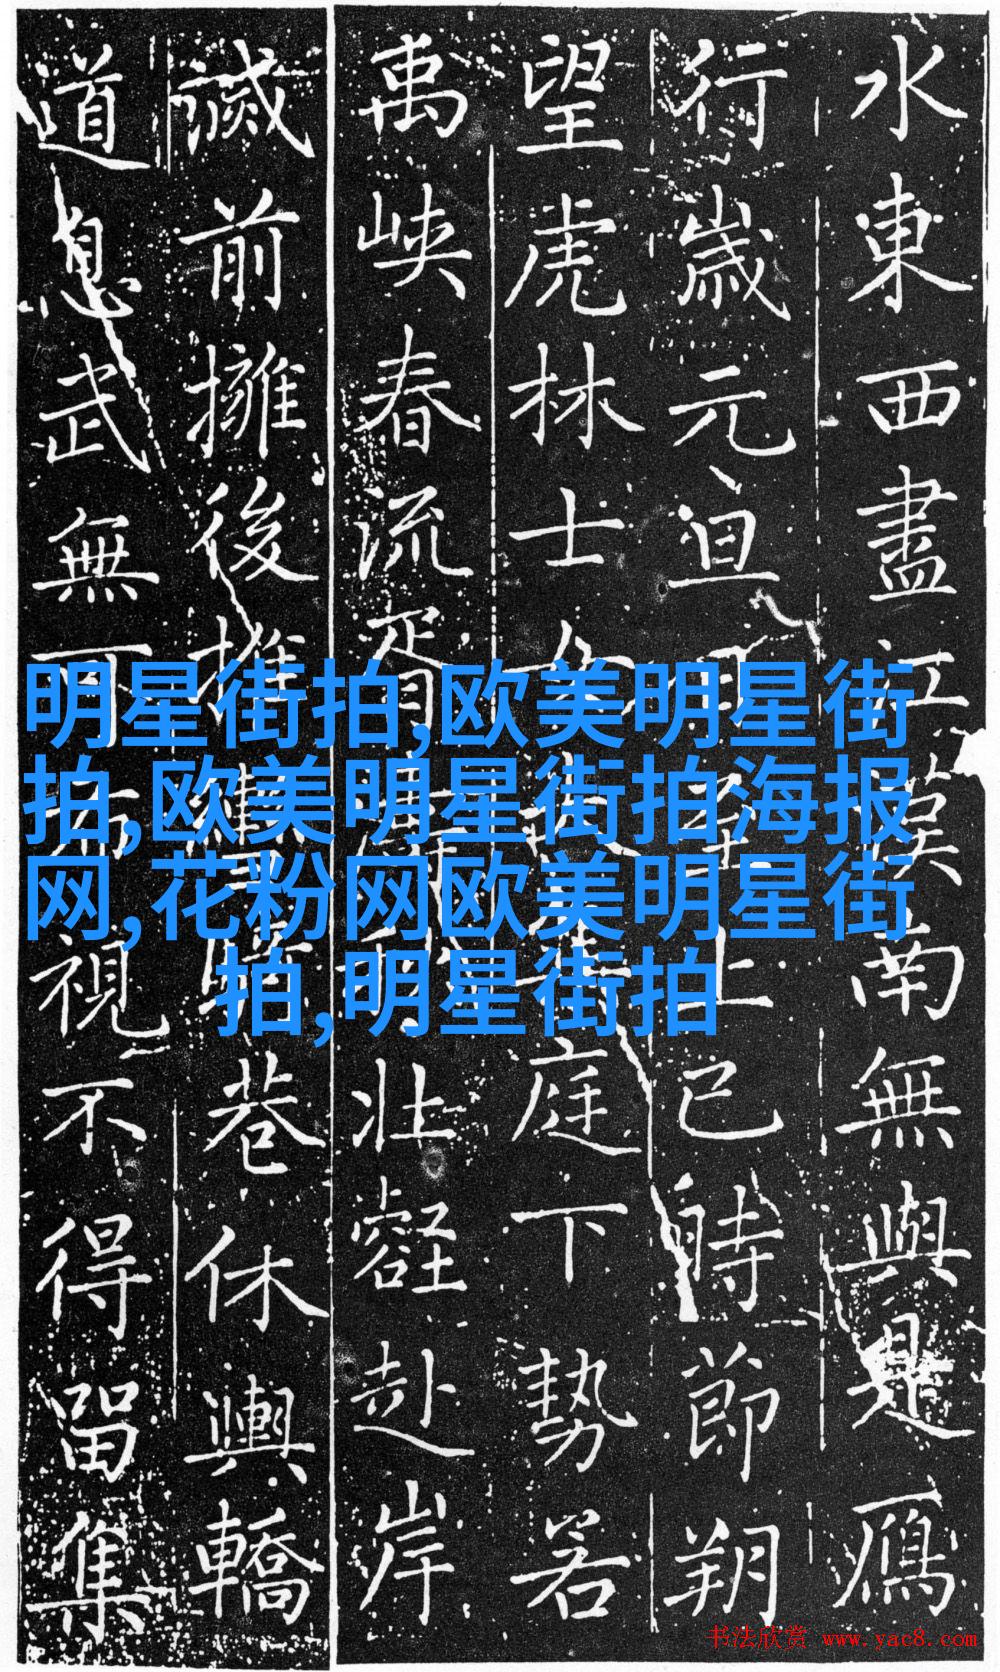 水東西盡江漢南無與是鴈
行歲元旦上已時節朔
望虎林士女庭下勢若
禹峽春流胥壯壑赴岸
滅前擁後推巷休輿轎
道息武無可布視不得留集
明星街拍,欧美明星街
拍,欧美明星街拍海报
网,花粉网欧美明星街
拍,明星街拍
书法欣赏 www.yac8.com